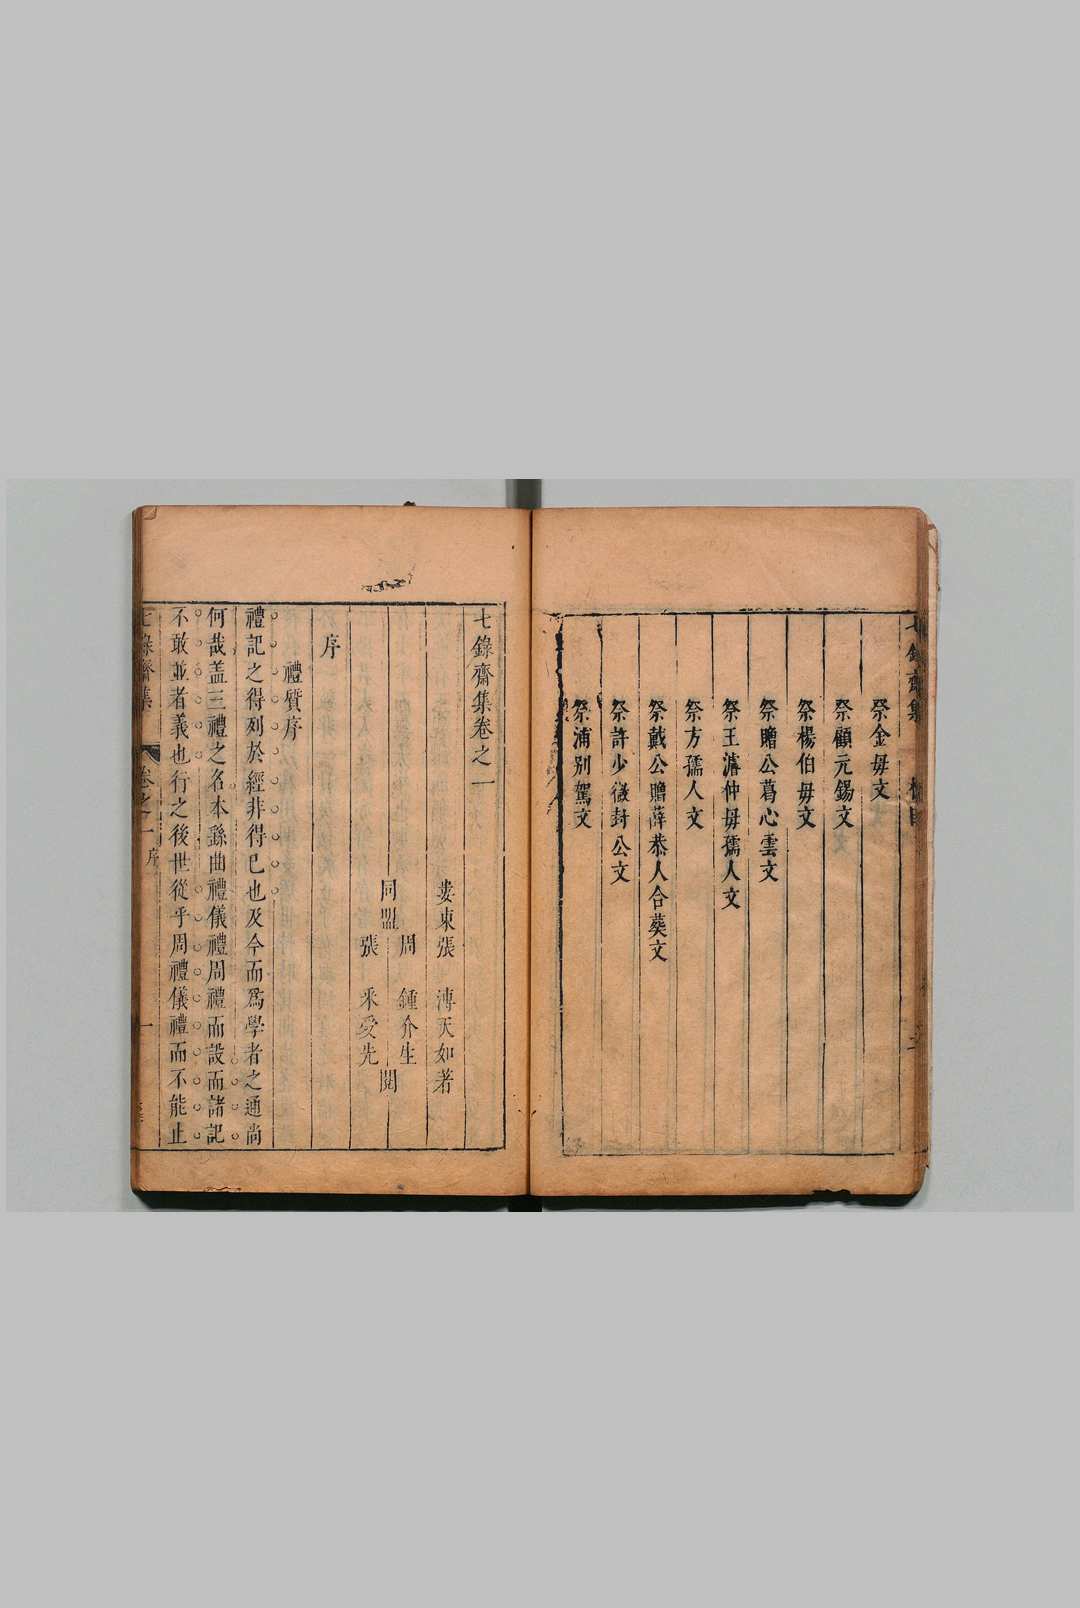 祭金毋文
祭顧元錫文
祭楊伯毋文
祭贈公葛心雲文
祭王濬仲毋孺人文
祭方孺人文
祭戴公贈薛恭人合葬文
祭許少微封公文
祭浦別駕文
七錄齋集卷之一
婁東張溥天如著
同盟
周鍾介生
張釆受先
閱
序
禮質序
禮記之得列於經非得已也及今而爲學者之通尚
何哉盖三禮之名本繇曲禮儀禮周禮而設而諸記
不敢並者義也行之後世從乎周禮儀禮而不能止
七錄齋集 卷之一 序 一